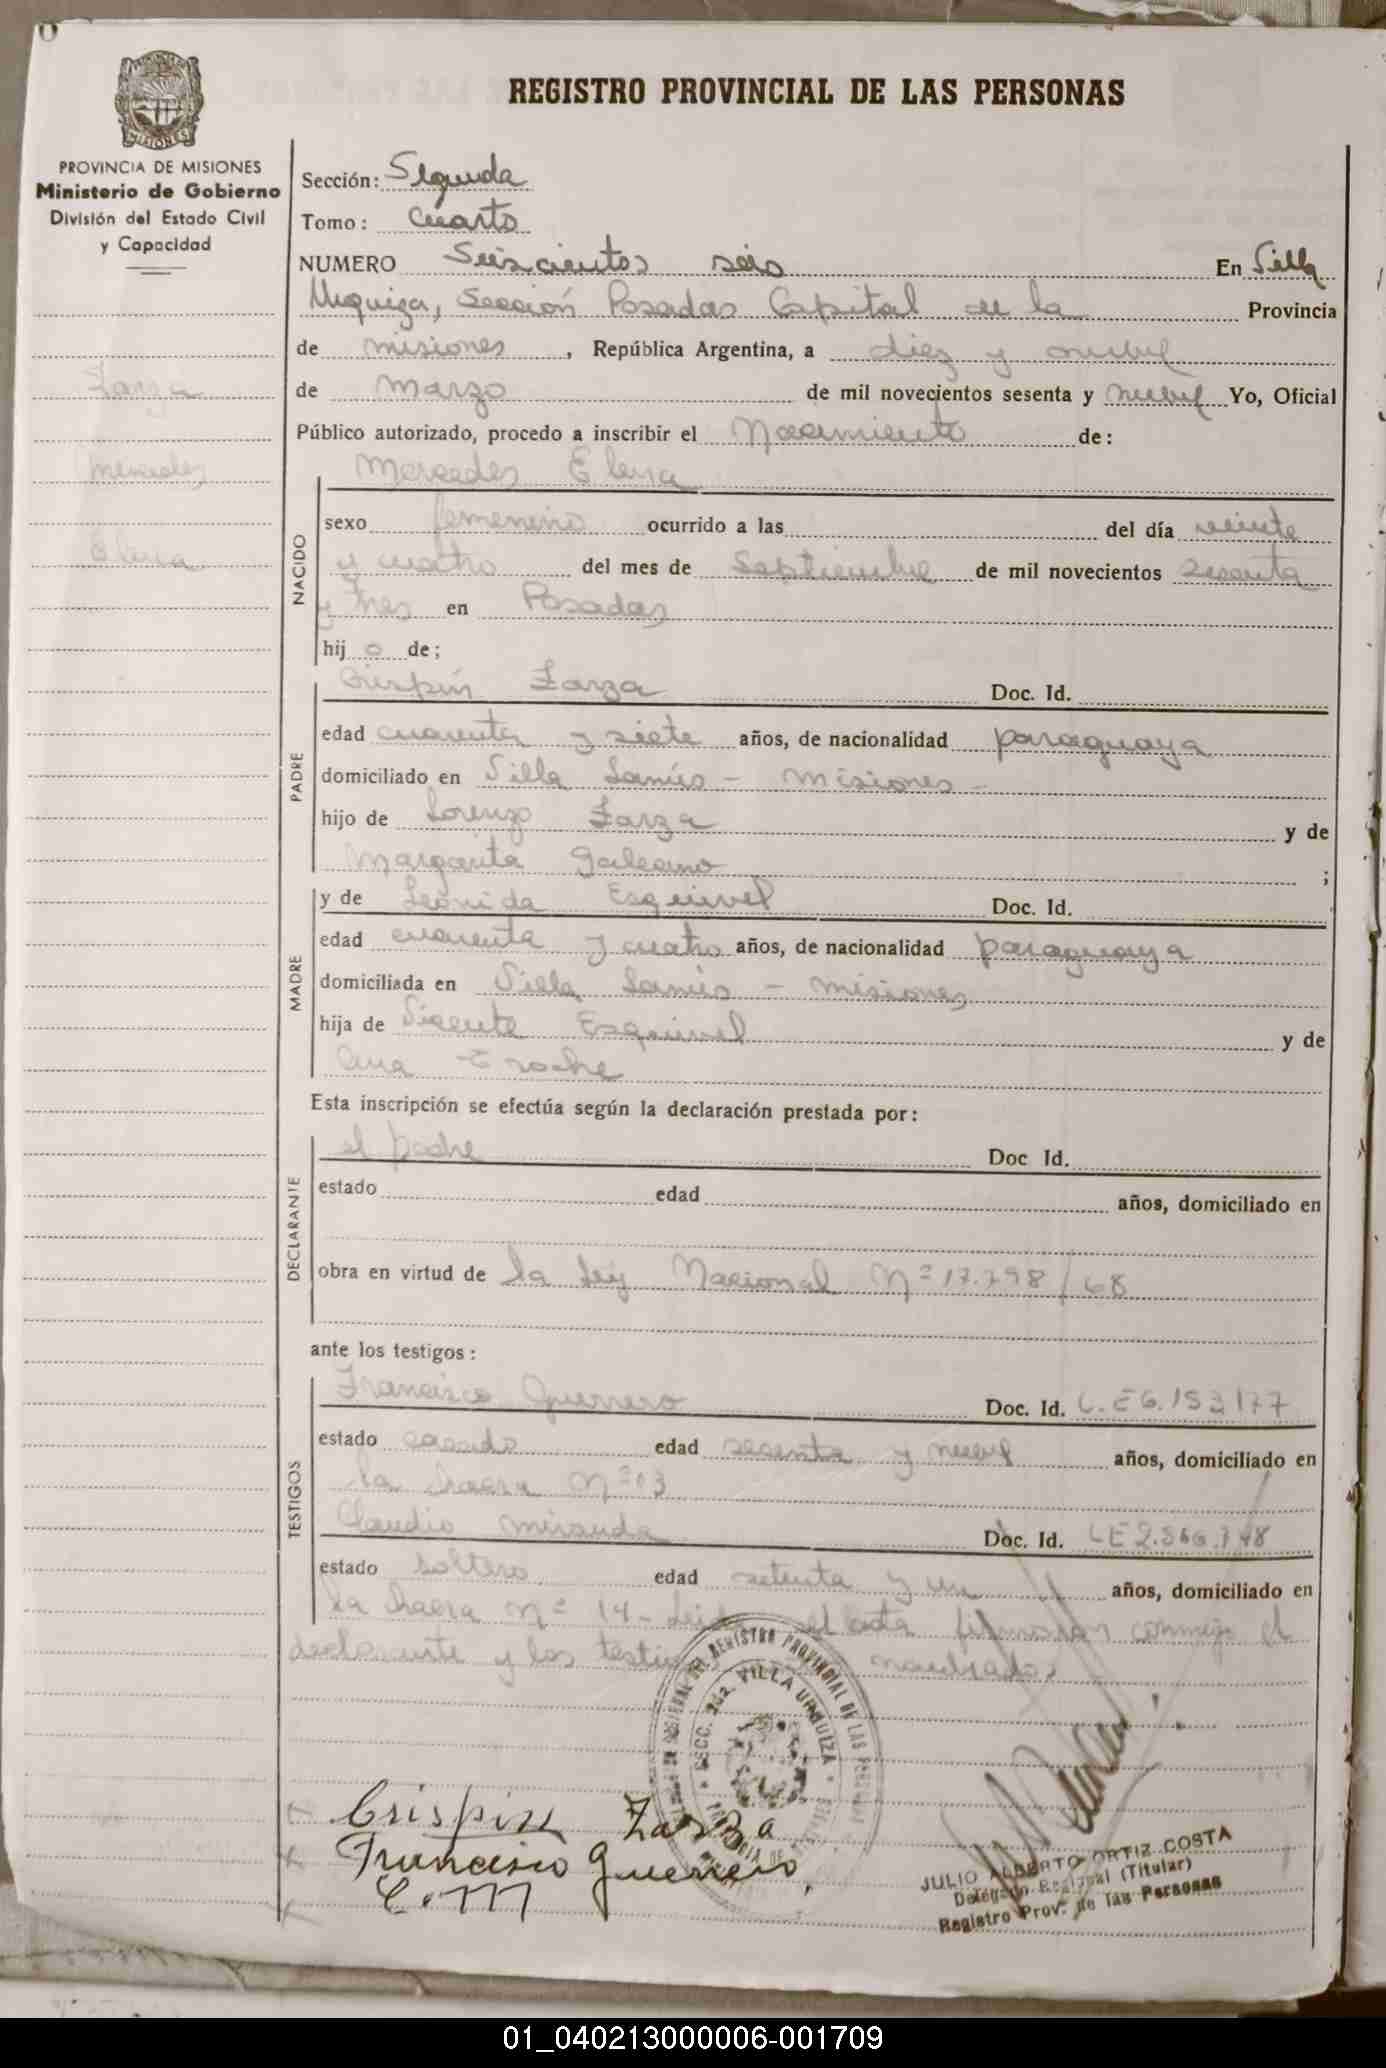 REGISTRO PROVINCIAL DE LAS PERSONAS
MISIONES
PROVINCIA DE MISIONES
Ministerio de Gobierno
División del Estado Civil
y Capacidad
Zarza
Mercedes
Elena
Sección: Segunda
Tomo: Cuarto
NUMERO Seiscientos seis En Villa
Urquiza, Sección Posadas Capital de la Provincia
de misiones, República Argentina, a diez y nueve
de marzo de mil novecientos sesenta y nueve Yo, Oficial
Público autorizado, procedo a inscribir el Nacimiento de:
NACIDO
Mercedes Elena
sexo femenino ocurrido a las del día veinte
y cuatro del mes de Septiembre de mil novecientos sesenta
y Tres en Posadas
hij o de;
PADRE
Crispin Zarza Doc. Id.
edad cuarenta y siete años, de nacionalidad paraguaya
domiciliado en Villa Lanús - misiones -
hijo de Lorenzo Zarza y de
Margarita Galeano ;
MADRE
y de Leonida Esquivel Doc. Id.
edad cuarenta y cuatro años, de nacionalidad paraguaya
domiciliada en Villa Lanús - misiones
hija de Vicente Esquivel y de
Ana
Esta inscripción se efectúa según la declaración prestada por:
DECLARANTE
el padre Doc Id.
estado edad años, domiciliado en
obra en virtud de la Ley Nacional Nº 17.798/68
ante los testigos:
TESTIGOS
Francisco Guerrero Doc. Id. L.E 6.152177
estado casado edad sesenta y nueve años, domiciliado en
la chacra nº 13
Claudio Miranda Doc. Id. LE
estado soltero edad setenta y un años, domiciliado en
la chacra nº 14 - Leida el acta firman conmigo el
declarante y los testigos
SECC. 2da. VILLA URQUIZA
Crispin Zarza
Francisco Guerrero
C. M
JULIO ALBERTO ORTIZ COSTA
Delegado Regional (Titular)
Registro Prov. de las Personas
01_040213000006-001709